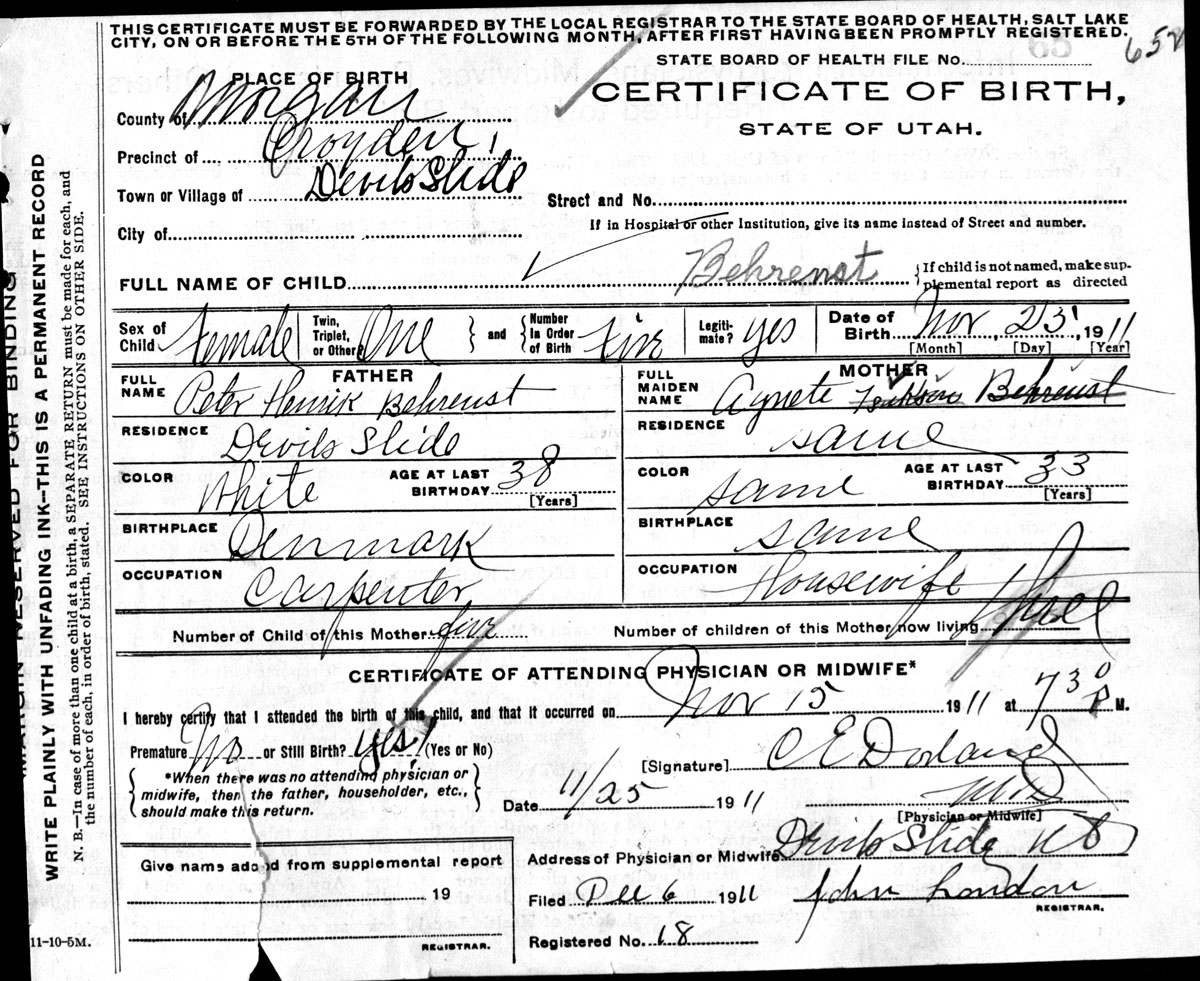 THIS CERTIFICATE MUST BE FORWARDED BY THE LOCAL REGISTRAR TO THE STATE BOARD OF HEALTH, SALT LAKE
CITY, ON OR BEFORE THE 5TH OF THE FOLLOWING MONTH, AFTER FIRST HAVING BEEN PROMPTLY REGISTERED.
STATE BOARD OF HEALTH FILE No.
PLACE OF BIRTH
CERTIFICATE OF BIRTH,
STATE OF UTAH.
County of Morgan
Precinct of Croyden,
Town or Village of Devils Slide
Street and No.
City of
If in Hospital or other Institution, give its name instead of Street and number.
FULL NAME OF CHILD Behrenst
{If child is not named, make sup-
plemental report as directed
Sex of Child female Twin, Triplet, or Other? One } and { Number In Order of Birth five Legiti-mate? yes Date of Birth Nov 23, 1911
[Month] [Day] [Year]
FATHER
FULL NAME Peter Henrik Behrenst
RESIDENCE Devils Slide
COLOR White AGE AT LAST BIRTHDAY 38 [Years]
BIRTHPLACE Denmark
OCCUPATION Carpenter
MOTHER
FULL MAIDEN NAME Agnete Behrenst
RESIDENCE same
COLOR same AGE AT LAST BIRTHDAY 33 [Years]
BIRTHPLACE same
OCCUPATION Housewife
Number of Child of this Mother five Number of children of this Mother now living three
CERTIFICATE OF ATTENDING PHYSICIAN OR MIDWIFE*
I hereby certify that I attended the birth of this child, and that it occurred on Nov 15 1911 at 730 P M.
Premature No or Still Birth? yes! (Yes or No)
[Signature] C E Dorland
MD
[Physician or Midwife]
{ *When there was no attending physician or
midwife, then the father, householder, etc.,
should make this return. }
Date 11/25 1911
Address of Physician or Midwife Devils Slide
Give name added from supplemental report
19
REGISTRAR.
Filed Dec 6 1911 John London
REGISTRAR.
Registered No. 18
11-10-5M.
MARGIN RESERVED FOR BINDING
WRITE PLAINLY WITH UNFADING INK—THIS IS A PERMANENT RECORD
N. B.—In case of more than one child at a birth, a SEPARATE RETURN must be made for each, and
the number of each, in order of birth, stated. SEE INSTRUCTIONS ON OTHER SIDE.